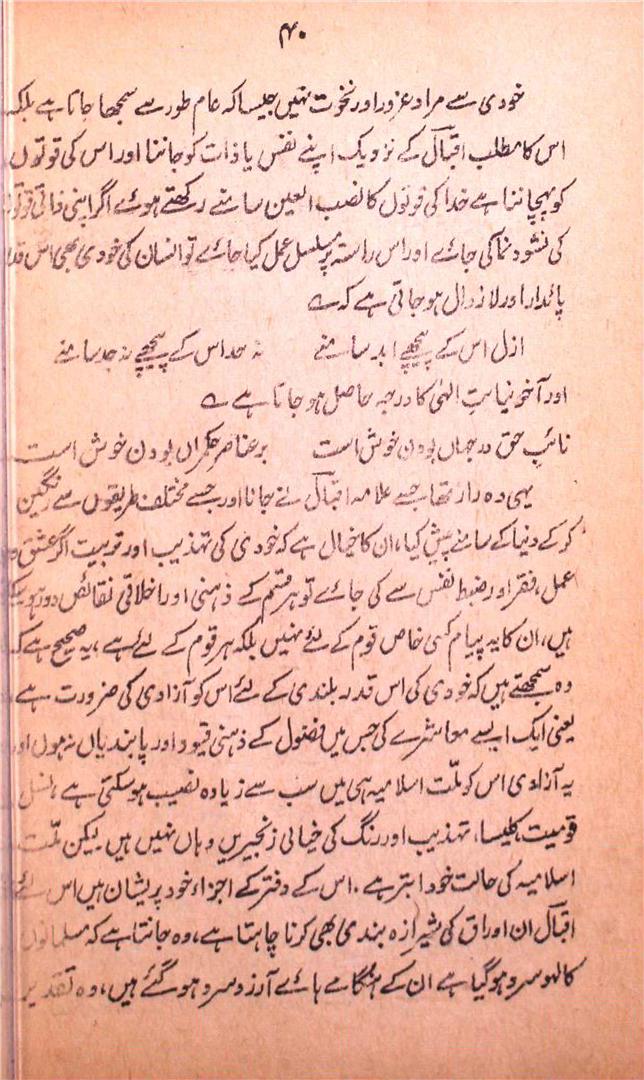 ۴۰
خودی سے مراد غرور اور نخوت نہیں جیسا کہ عام طور سے سمجھا جاتا ہے بلکہ
اس کا مطلب اقبالؔ کے نزدیک اپنے نفس یا ذات کو جاننا اور اس کی قوتوں
کو پہچاننا ہے خدا کی قوتوں کا نصب العین سامنے رکھتے ہوئے اگر اپنی ذاتی
کی نشو و نما کی جائے اور اس راستہ پر مسلسل عمل کیا جائے تو انسان کی خودی بھی اس قدر
پائدار اور لازوال ہو جاتی ہے کہ ؎
ازل اس کے پیچھے ابد سامنے نہ حد اس کے پیچھے نہ حد سامنے
اور آخر نیابتِ الٰہی کا درجہ حاصل ہو جاتا ہے ؎
نائبِ حق در جہاں بودن خوش است بر عناصر حکمراں بودن خوش است
یہی وہ راز تھا جسے علامہ اقبالؔ نے جانا اور جسے مختلف طریقوں سے رنگین
کر کے دنیا کے سامنے پیش کیا، ان کا خیال ہے کہ خودی کی تہذیب اور تربیت اگر عشق و
عمل، فقر اور ضبط نفس سے کی جائے تو ہر قسم کے ذہنی اور اخلاقی نقائص دور ہو سکتے
ہیں، ان کا یہ پیام کسی خاص قوم کے لئے نہیں بلکہ ہر قوم کے لئے ہے، یہ صحیح ہے کہ
وہ سمجھتے ہیں کہ خودی کی اس قدر بلندی کے لئے اس کو آزادی کی ضرورت ہے
یعنی ایک ایسے معاشرے کی جس میں فضول کے ذہنی قیود اور پابندیاں نہ ہوں اور
یہ آزادی اس کو ملّت اسلامیہ ہی میں سب سے زیادہ نصیب ہو سکتی ہے، نسل
قومیت، کلیسا، تہذیب اور رنگ کی خیالی زنجیریں وہاں نہیں ہیں لیکن ملّت
اسلامیہ کی حالت خود ابتر ہے۔ اس کے دفتر کے اجزاء خود پریشان ہیں اس لئے
اقبالؔ ان اوراق کی شیرازہ بندی بھی کرنا چاہتا ہے، وہ جانتا ہے کہ مسلمانوں
کا لہو سرد ہو گیا ہے ان کے ہنگامے ہائے آرزو سرد ہو گئے ہیں، وہ تقدیر